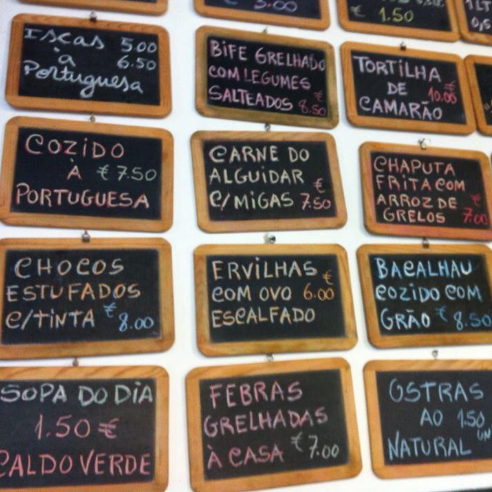 3.00
€ 1.50
1LT
0,5
Iscas 5.00
à 6.50
Portuguesa
BIFE GRELHADO
COM LEGUMES
SALTEADOS € 8.50
TORTILHA
DE € 10.00
CAMARÃO
COZIDO
À € 7.50
PORTUGUESA
CARNE DO
ALGUIDAR €
C/MIGAS 7.50
CHAPUTA
FRITA COM
ARROZ DE €
GRELOS 7.00
CHOCOS
ESTUFADOS
C/TINTA € 8.00
ERVILHAS €
COM OVO 6.00
ESCALFADO
BACALHAU
COZIDO COM
GRÃO € 8.50
SOPA DO DIA
1.50 €
CALDO VERDE
FEBRAS
GRELHADAS
À CASA € 7.00
OSTRAS
AO 1.50
UN
NATURAL